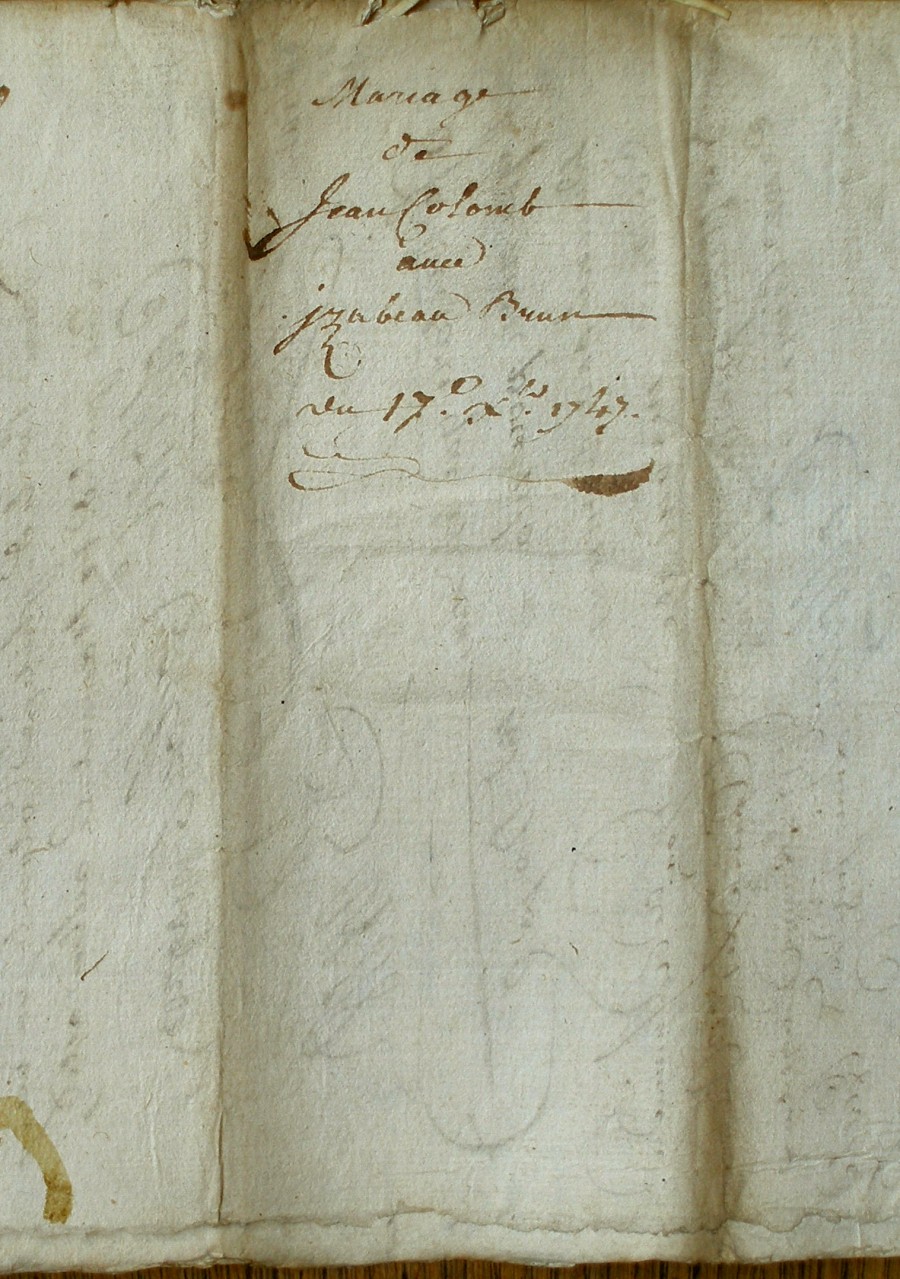 Mariage
de
Jean Colomb
avec
jzabeau Brun
du 17.e Xbre 1747.